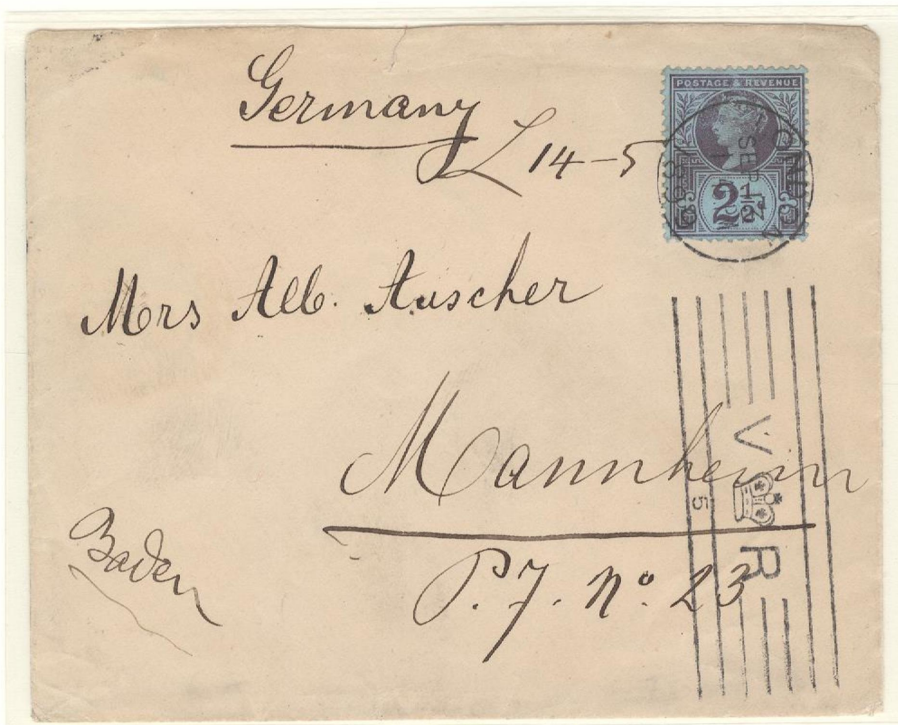 Germany
L 14-5
POSTAGE & REVENUE
2½d
LONDON
SEP
Mrs Alb. Auscher
Mannheim
Baden
P.7. No. 23
V R
5